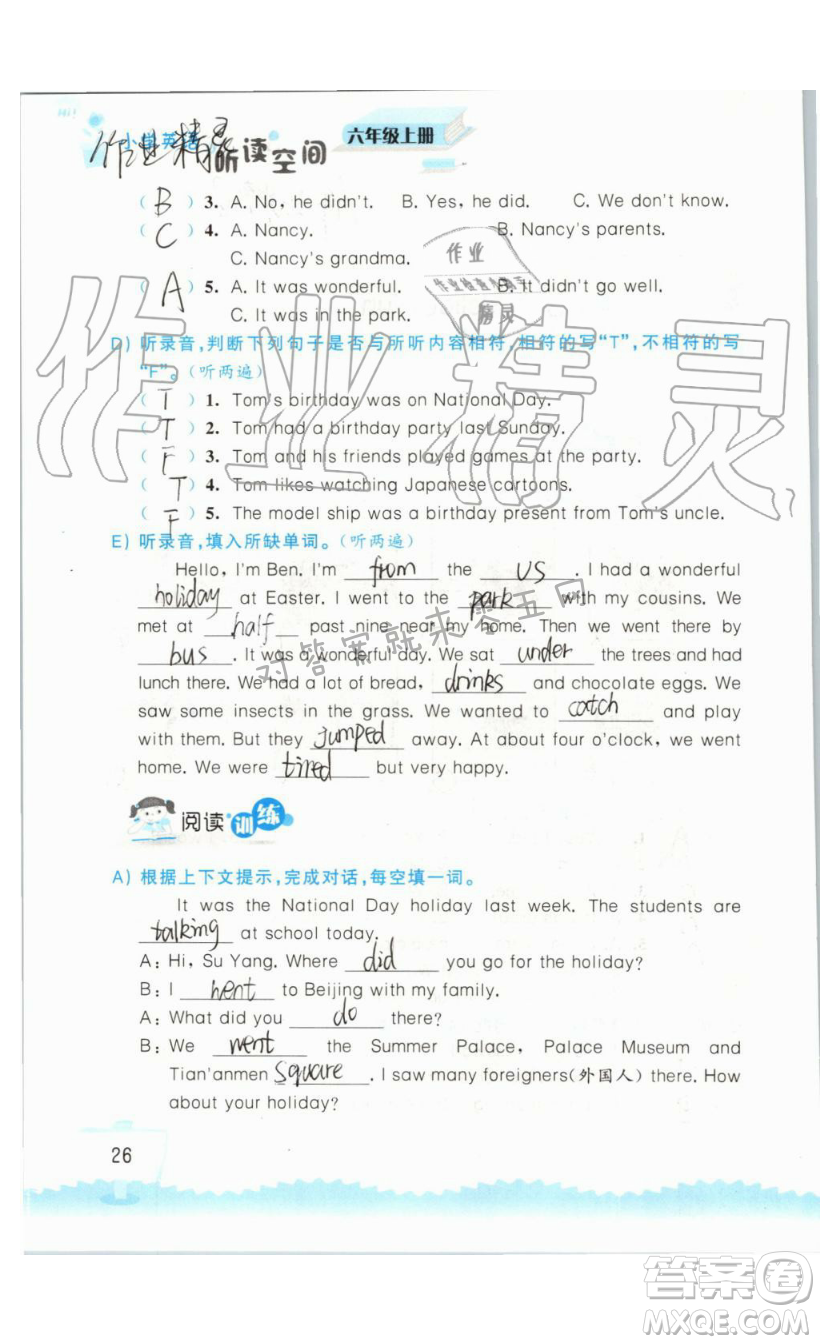 Hi!
小学英语
六年级上册
作业精灵
听读空间
( B ) 3. A. No, he didn't. B. Yes, he did. C. We don't know.
( C ) 4. A. Nancy. B. Nancy's parents.
C. Nancy's grandma.
( A ) 5. A. It was wonderful. B. It didn't go well.
C. It was in the park.
D) 听录音,判断下列句子是否与所听内容相符,相符的写“T”,不相符的写
“F”。(听两遍)
( T ) 1. Tom's birthday was on National Day.
( T ) 2. Tom had a birthday party last Sunday.
( F ) 3. Tom and his friends played games at the party.
( T ) 4. Tom likes watching Japanese cartoons.
( F ) 5. The model ship was a birthday present from Tom's uncle.
作业精灵
E) 听录音,填入所缺单词。(听两遍)
Hello, I'm Ben. I'm from the US . I had a wonderful
holiday at Easter. I went to the park with my cousins. We
met at half past nine near my home. Then we went there by
bus . It was a wonderful day. We sat under the trees and had
lunch there. We had a lot of bread, drinks and chocolate eggs. We
saw some insects in the grass. We wanted to catch and play
with them. But they jumped away. At about four o'clock, we went
home. We were tired but very happy.
对答案就来零五网
阅读训练
A) 根据上下文提示,完成对话,每空填一词。
It was the National Day holiday last week. The students are
talking at school today.
A: Hi, Su Yang. Where did you go for the holiday?
B: I went to Beijing with my family.
A: What did you do there?
B: We went the Summer Palace, Palace Museum and
Tian'anmen Square . I saw many foreigners(外国人) there. How
about your holiday?
26
答案卷
MXQE.COM